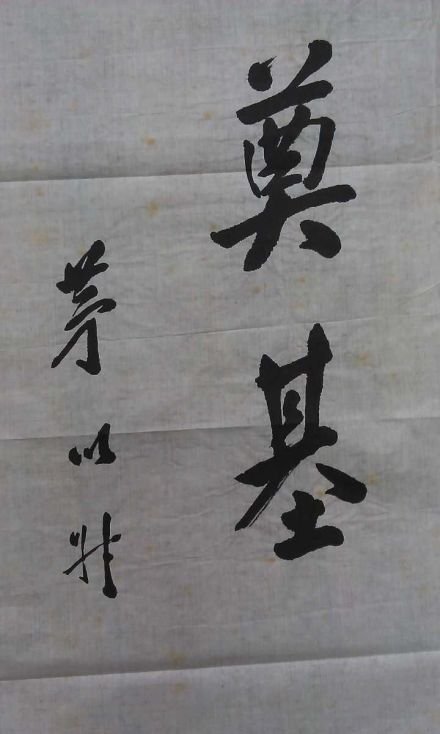 奠基
茅以升